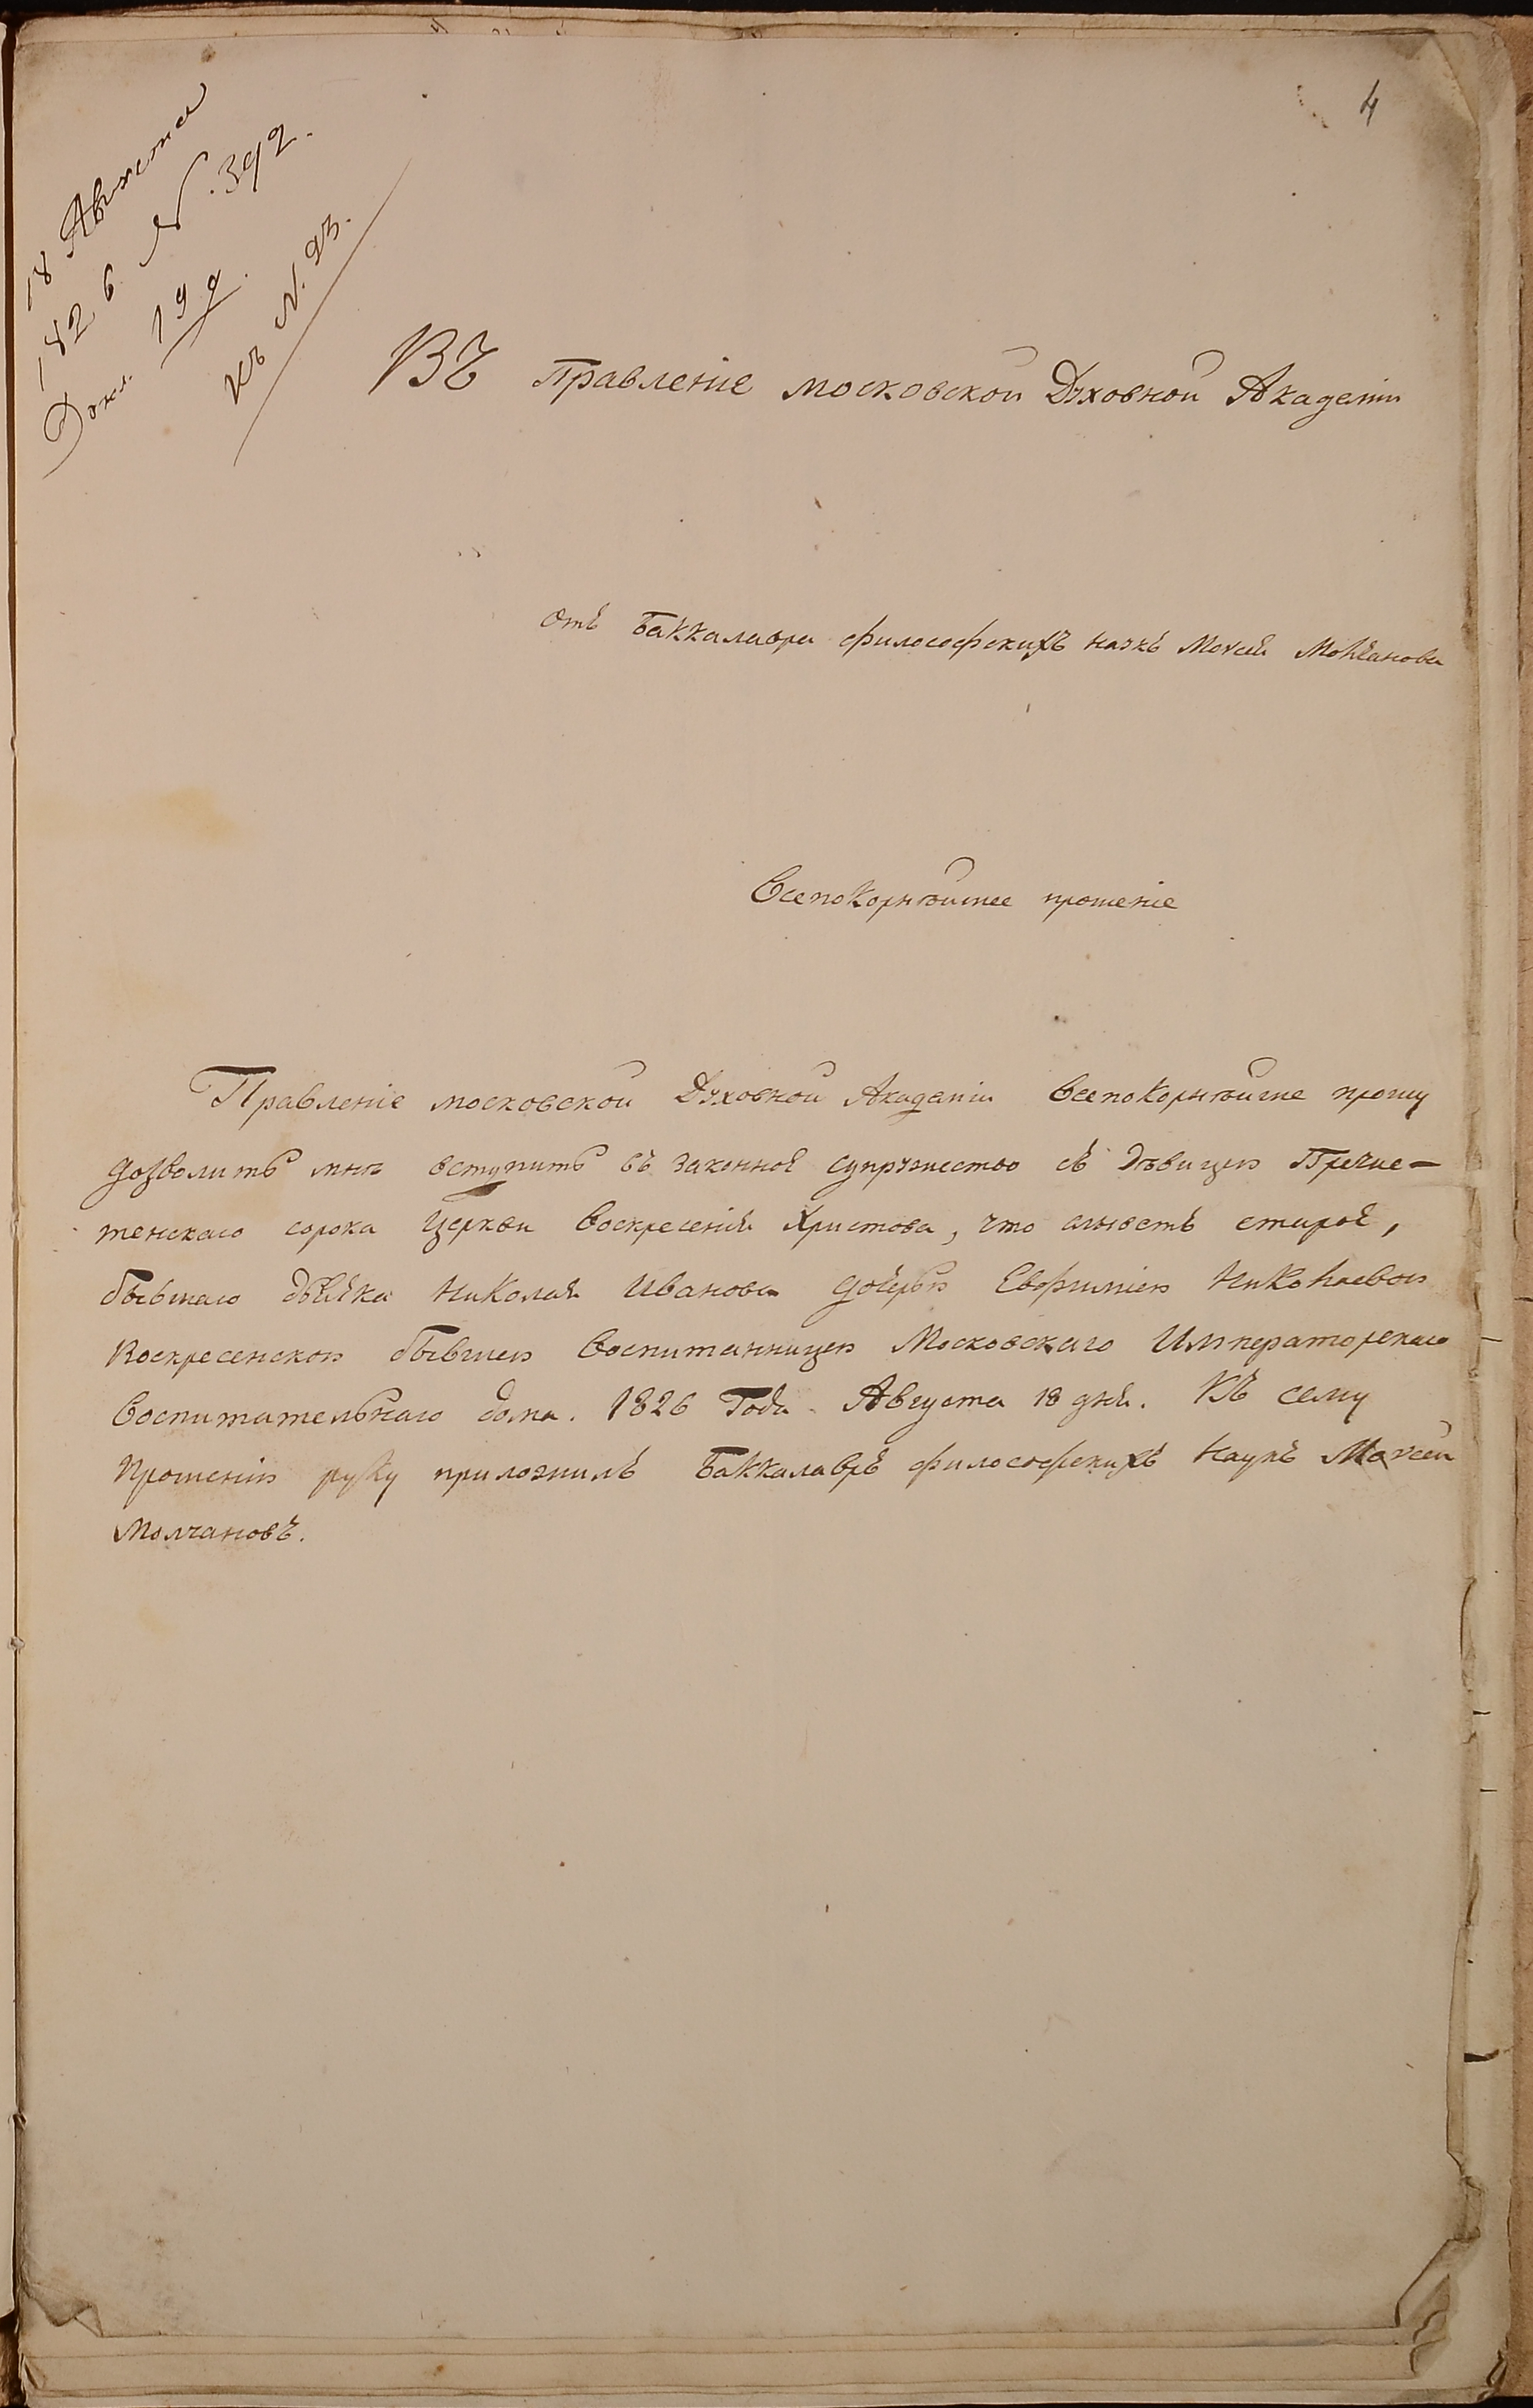 4
18 Августа
1826 N. 392.
Докл. 19 д.
Къ N. 93.
Въ Правленіе Московской Духовной Академіи
Отъ Баккалавра философскихъ наукъ Моисея Молчанова
Всепокорнѣйшее прошеніе
Правленіе Московской Духовной Академіи всепокорнѣйше прошу
дозволить мнѣ вступить въ законное супружество съ дѣвицею Пречис-
тенскаго сорока Церкви Воскресенія Христова, что слыветъ старое,
бывшаго дьячка Николая Иванова дочерью Евфиміею Николаевою
Воскресенскою бывшею воспитанницею Московскаго Императорскаго
Воспитательнаго дома. 1826 Года Августа 18 дня. Къ сему
Прошенію руку приложилъ Баккалавръ философскихъ Наукъ Моисей
Молчановъ.